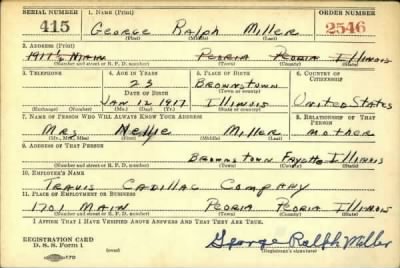 SERIAL NUMBER 1. NAME (Print) ORDER NUMBER
415 George Ralph Miller 2546
(First) (Middle) (Last)
2. ADDRESS (Print)
1917½ Main Peoria Peoria Illinois
(Number and street or R. F. D. number) (Town) (County) (State)
3. TELEPHONE 4. AGE IN YEARS 5. PLACE OF BIRTH 6. COUNTRY OF CITIZENSHIP
23 Brownstown
DATE OF BIRTH (Town or county)
Jan 12 1917 Illinois United States
(Exchange) (Number) (Mo.) (Day) (Yr.) (State or country)
7. NAME OF PERSON WHO WILL ALWAYS KNOW YOUR ADDRESS 8. RELATIONSHIP OF THAT PERSON
Mrs Nellie Miller mother
(Mr., Mrs., Miss) (First) (Middle) (Last)
9. ADDRESS OF THAT PERSON
Brownstown Fayette Illinois
(Number and street or R. F. D. number) (Town) (County) (State)
10. EMPLOYER'S NAME
Travis Cadillac Company
11. PLACE OF EMPLOYMENT OR BUSINESS
1701 Main Peoria Peoria Illinois
(Number and street or R. F. D. number) (Town) (County) (State)
I AFFIRM THAT I HAVE VERIFIED ABOVE ANSWERS AND THAT THEY ARE TRUE.
REGISTRATION CARD George Ralph Miller
D. S. S. Form 1 (over) (Registrant's signature)